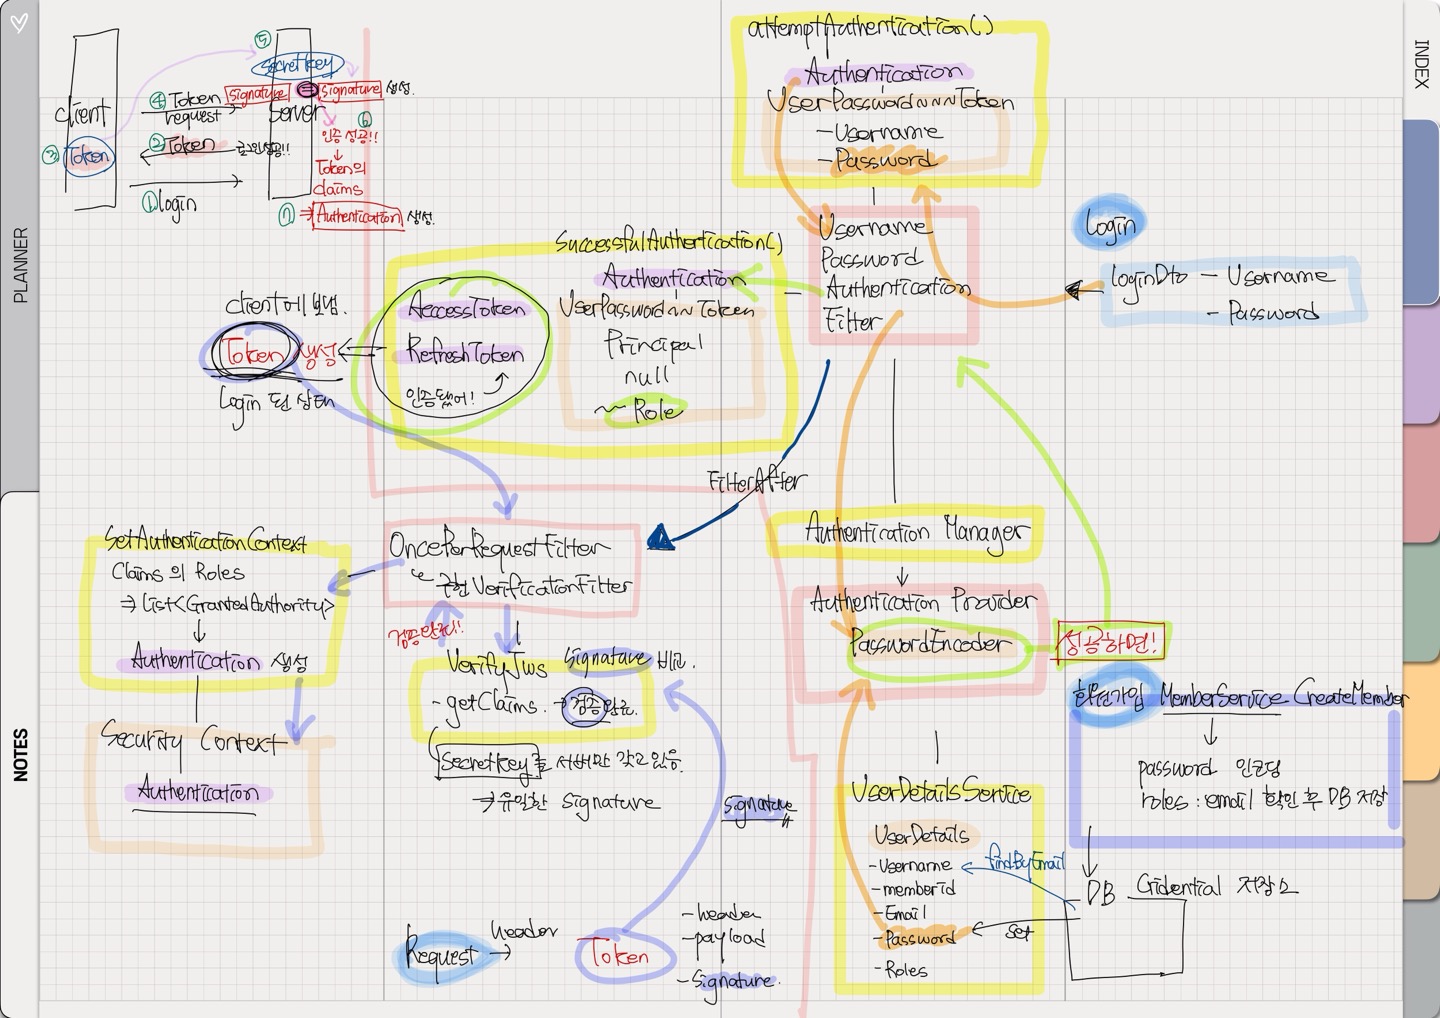 PLANNER
NOTES
INDEX
client
③ Token
④ Token
request
② Token
로그인성공!!
① login
⑤
secretkey
signature = signature 생성.
server
⑥
인증 성공!!
↓
Token의
claims
⑦ ⇒ Authentication 생성.
attemptAuthentication()
Authentication
UserPassword~~~Token
- Username
- Password
Username
Password
Authentication
Filter
Login
loginDto - Username
- Password
SuccessfulAuthentication()
Authentication
UserPassword~~Token
Principal
null
~~ Role
AccessToken
RefreshToken
인증됐어!
client에 보냄.
Token 생성
Login 된 상태
FilterAfter
OncePerRequestFilter
구현 VerificationFilter
검증완료!!
VerifyJws
signature 비교.
- getClaims. → 검증완료.
Secretkey를 서버만 갖고 있음.
→ 유일한 signature
SetAuthenticationContext
Claims 의 Roles
⇒ List<GrantedAuthority>
↓
Authentication 생성
Security Context
Authentication
Authentication Manager
↓
Authentication Provider
PasswordEncoder
성공하면!
회원가입 MemberService CreateMember
↓
password 인코딩
roles : email 확인 후 DB 저장
UserDetailsService
UserDetails
- Username
- memberid
- Email
- Password
- Roles
findByEmail
set
DB
Cridential 저장소
Request → header
Token
- header
- payload
- Signature.
signature